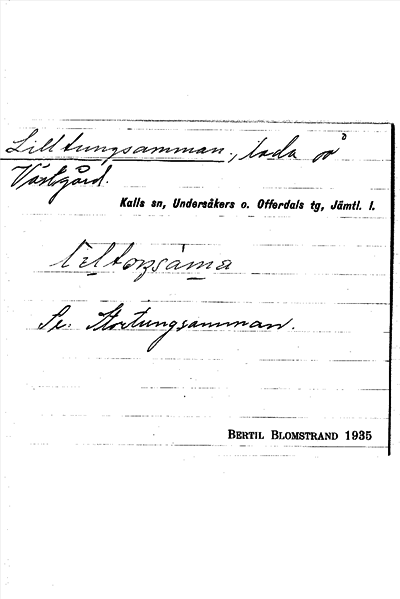 Lilltungsamman, lada på
Västgård.
Kalls sn, Undersåkers o. Offerdals tg, Jämtl. l.
Se: Stortungsamman.
BERTIL BLOMSTRAND 1935